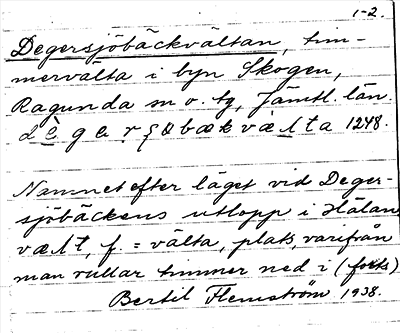 1-2.
Degersjöbäckvältan, tim-
mervälta i byn Skogen,
Ragunda sn o. tg, Jämtl. län.
1248.
Namnet efter läget vid Deger-
sjöbäckens utlopp i Hälan
vält, f. = välta, plats, varifrån
man rullar timmer ned i (forts)
Bertil Flemström 1938.